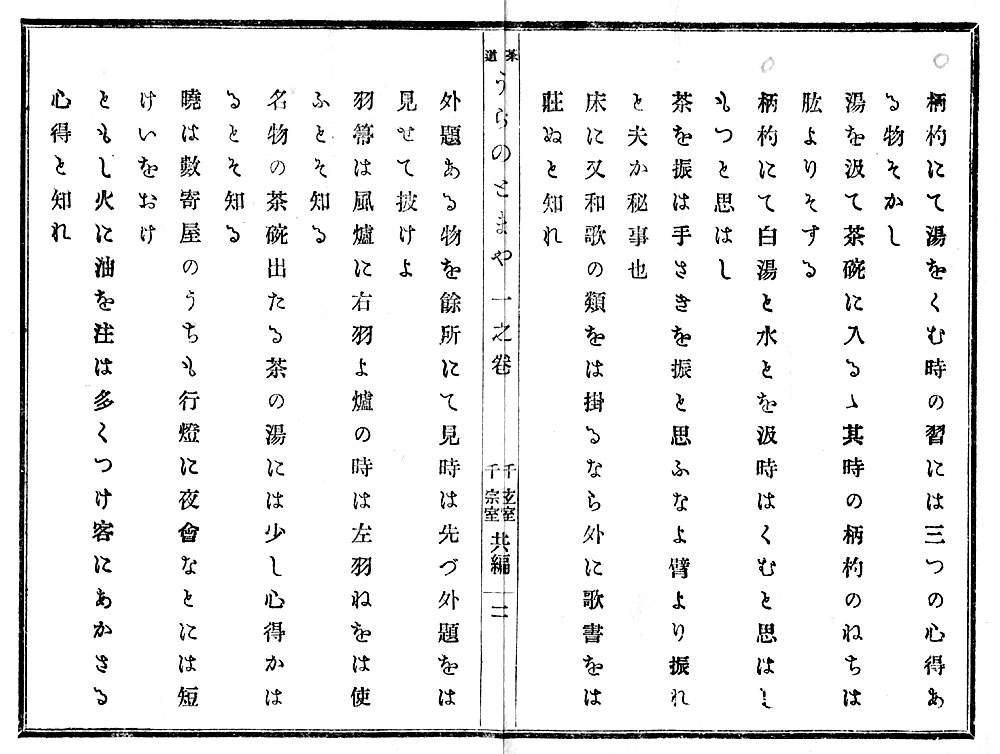 柄杓にて湯をくむ時の習には三つの心得あ
る物そかし
湯を汲て茶碗に入るゝ其時の柄杓のねちは
肱よりそする
柄杓にて白湯と水とを汲時はくむと思はし
もつと思はし
茶を振は手さきを振と思ふなよ臂より振れ
と夫か秘事也
床に又和歌の類をは掛るなら外に歌書をは
莊ぬと知れ
茶道
うらのとまや一之卷
千玄室
千宗室
共編
二
外題ある物を餘所にて見時は先づ外題をは
見せて披けよ
羽箒は風爐に右羽よ爐の時は左羽ねをは使
ふとそ知る
名物の茶碗出たる茶の湯には少し心得かは
るとそ知る
曉は數寄屋のうちも行燈に夜會なとには短
けいをおけ
ともし火に油を注は多くつけ客にあかさる
心得と知れ